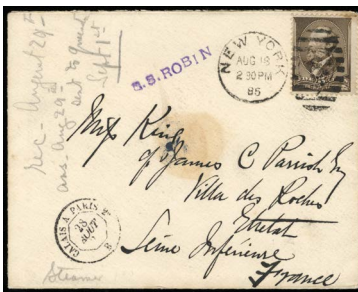 Rec - August 29th
ans. Aug 29th
Sept 1st
S.S. ROBIN
NEW YORK
AUG 18
2 30 PM
86
Miss King
James C Parrish Esq
Villa des Roches
Etretat
Seine Inférieure
France
CALAIS A PARIS
28
AOUT
Steamer